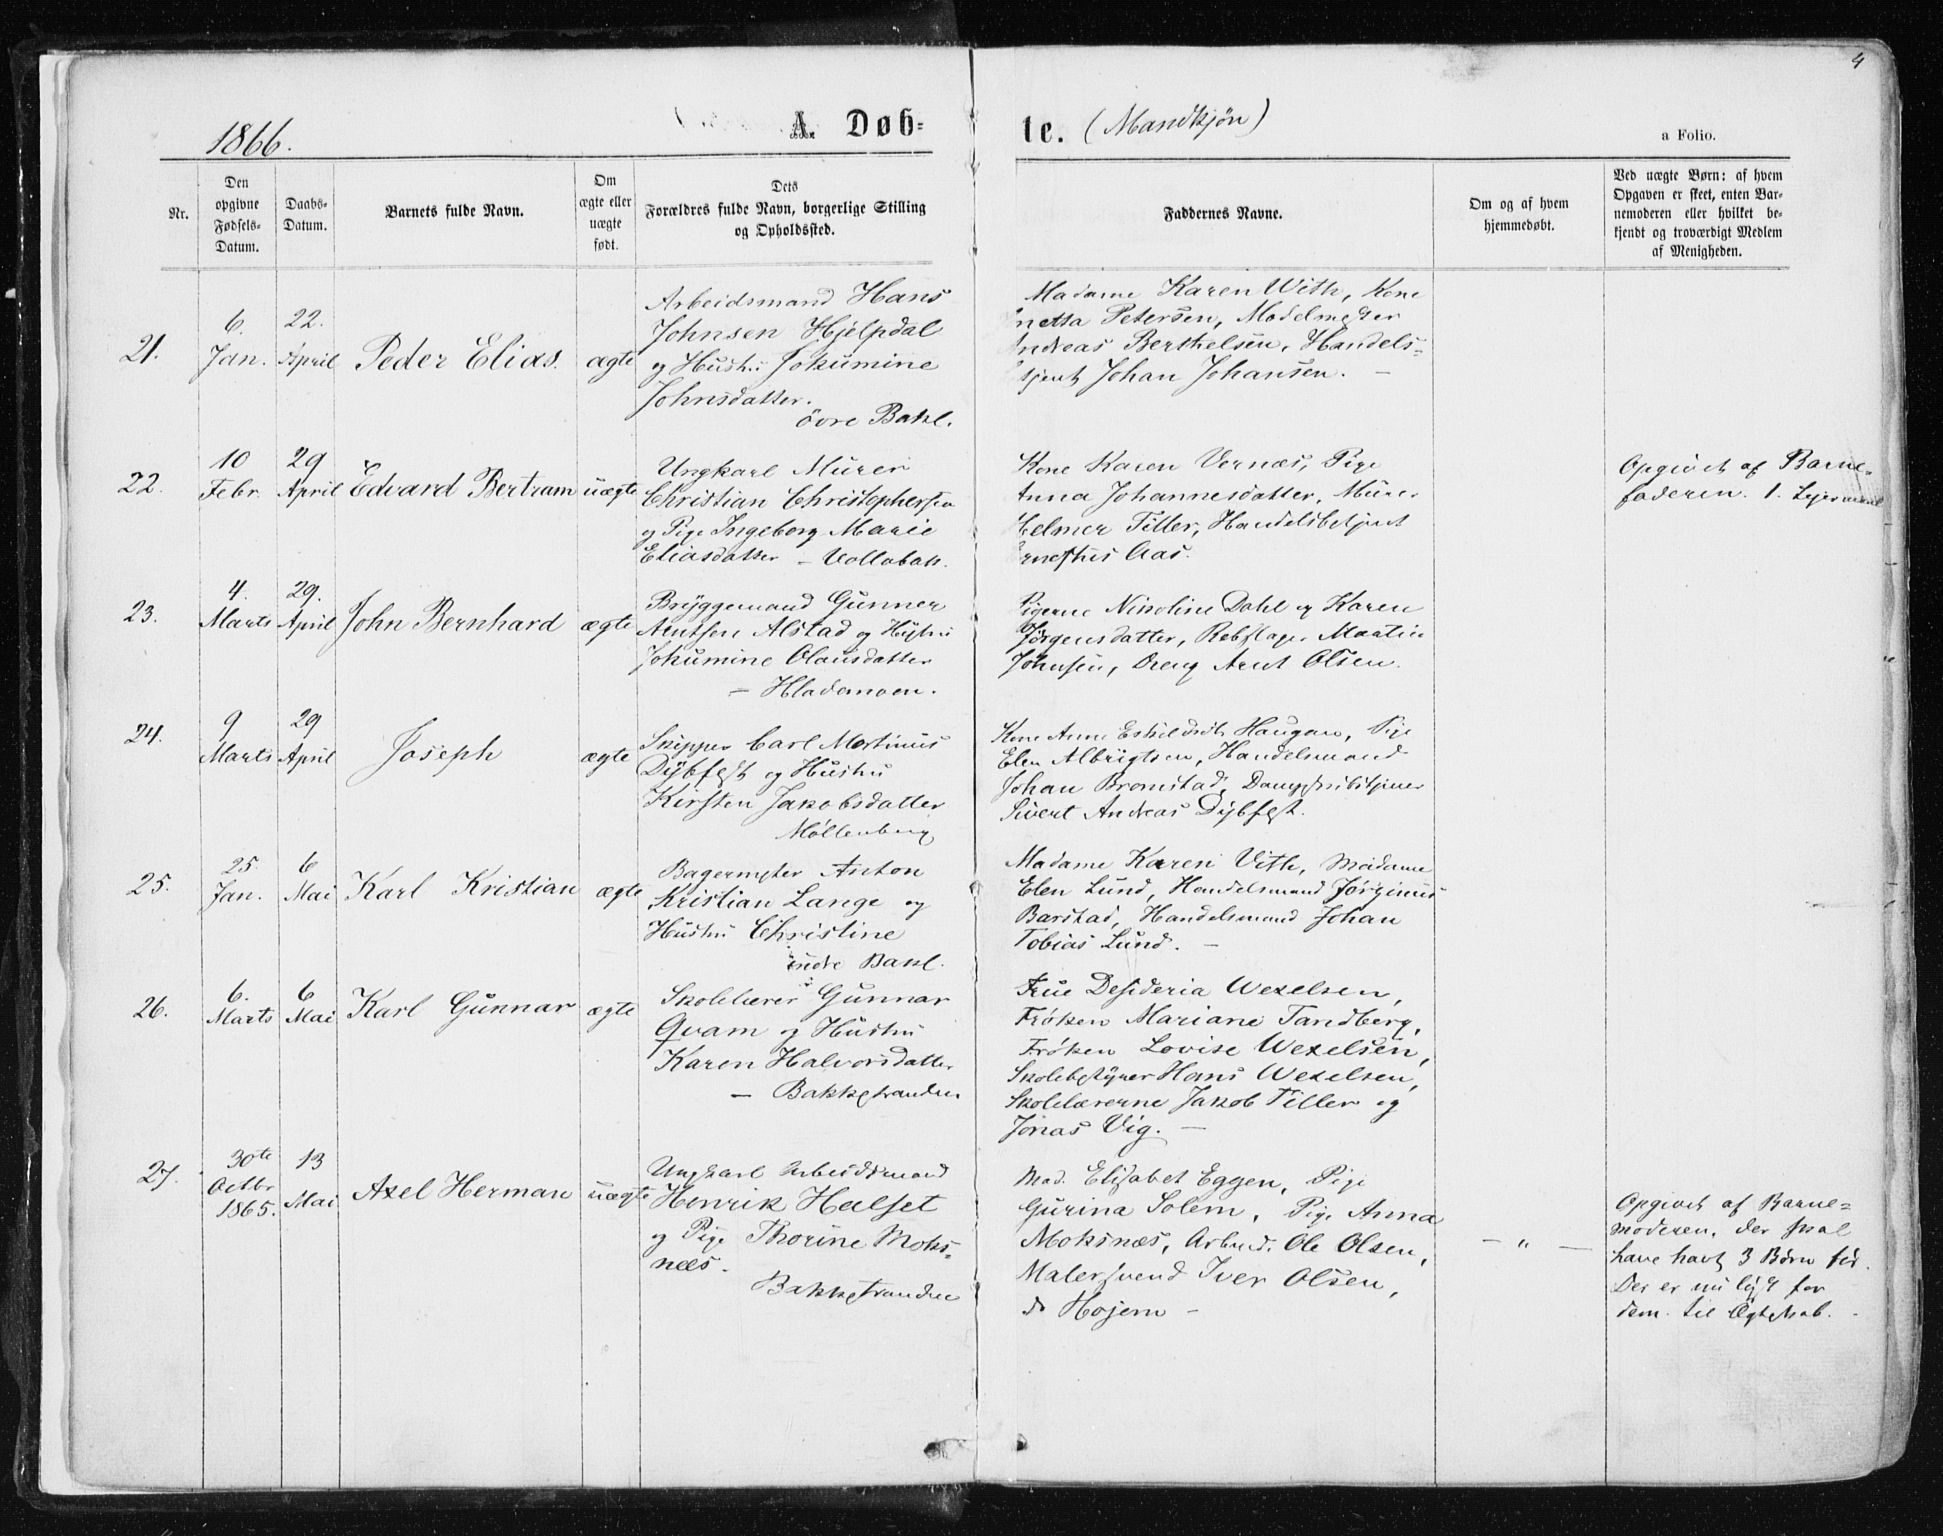 4
1866.
A. Døb-
te. (Mandkjøn)
a Folio.
Nr.
Den
opgivne
Fødsels-
Datum.
Daabs-
Datum.
Barnets fulde Navn.
Om
ægte eller
uægte
født.
Dets
Forældres fulde Navn, borgerlige Stilling
og Opholdssted.
Faddernes Navne.
Om og af hvem
hjemmedøbt.
Ved uægte Børn: af hvem
Opgaven er skeet, enten Bar-
nemoderen eller hvilket be-
kjendt og troværdigt Medlem
af Menigheden.
21.
6.
Jan.
22.
April
Peder Elias.
ægte
Arbeidsmand Hans
Johnsen Hjelpdal
og Hustru Jokumine
Johnsdatter.
övre Bakl.
Madame Karen With, Kone
netta Petersen, Mødelmester
Andreas Berthelsen, Handels-
tjent Johan Johansen. —
22.
10
Febr.
29
April
Edvard Bertram
uægte
Ungkarl Murer
Christian Christophersen
og Pige Ingeborg Marie
Eliasdatter — Vollabak.
Kone Karen Vernæs, Pige
Anna Johannesdatter, Murer
Helmer Tiller, Handelsbetjent
Ernestus Aas.
Opgivet af Barne-
faderen. 1. Leiermaal
23.
4.
Marts
29.
April
John Bernhard
ægte
Bryggemand Gunner
Arntsen Alstad og Hustru
Jokumine Olausdatter
— Hlademoen.
Pigerne Nikoline Dahl og Karen
Jørgensdatter, Rebslager Martin
Johnsen, Dreng Arnt Olsen.
24.
9
Marts
29
April
Joseph
ægte
Skipper Carl Martinus
Dybfest og Hustru
Kirsten Jakobsdatter
Möllenberg
Kone Anne Eskildsdt. Haugan, Pige
Elen Albrigtsen, Handelsmand
Johan Bromstad,
Sivert Andreas Dybfest.
25.
25.
Jan.
6
Mai
Karl Kristian
ægte
Bagermester Anton
Kristian Lange og
Hustru Christine
indre Bakl.
Madame Karen With, Madame
Elen Lund, Handelsmand Jørginus
Barstad, Handelsmand Johan
Tobias Lund. —
26.
6.
Marts
6
Mai
Karl Gunnar
ægte
Skolelærer Gunnar
Qvam og Hustru
Karen Halvorsdatter
— Bakkestranden
Frue Desideria Wexelsen,
Frøken Mariane Tandberg,
Frøken Lovise Wexelsen,
Skolebestyrer Hans Wexelsen,
Skolelærerne Jakob Tiller og
Jonas Vig. —
27.
30te
Octbr
1865.
13
Mai
Axel Herman
uægte
Ungkarl Arbeidsmand
Henrik Halset
og Pige Thorine Moks-
næs.
Bakkestranden
Mad. Elisabet Eggen, Pige
Gurina Solem, Pige Anna
Moksnæs, Arbmd. Ole Olsen,
Malersvend Iver Olsen,
do Hojem —
— „ —
Opgivet af Barne-
moderen, der skal
have havt 3 Børn før.
Der er nu lyst for
dem til Ægteskab.